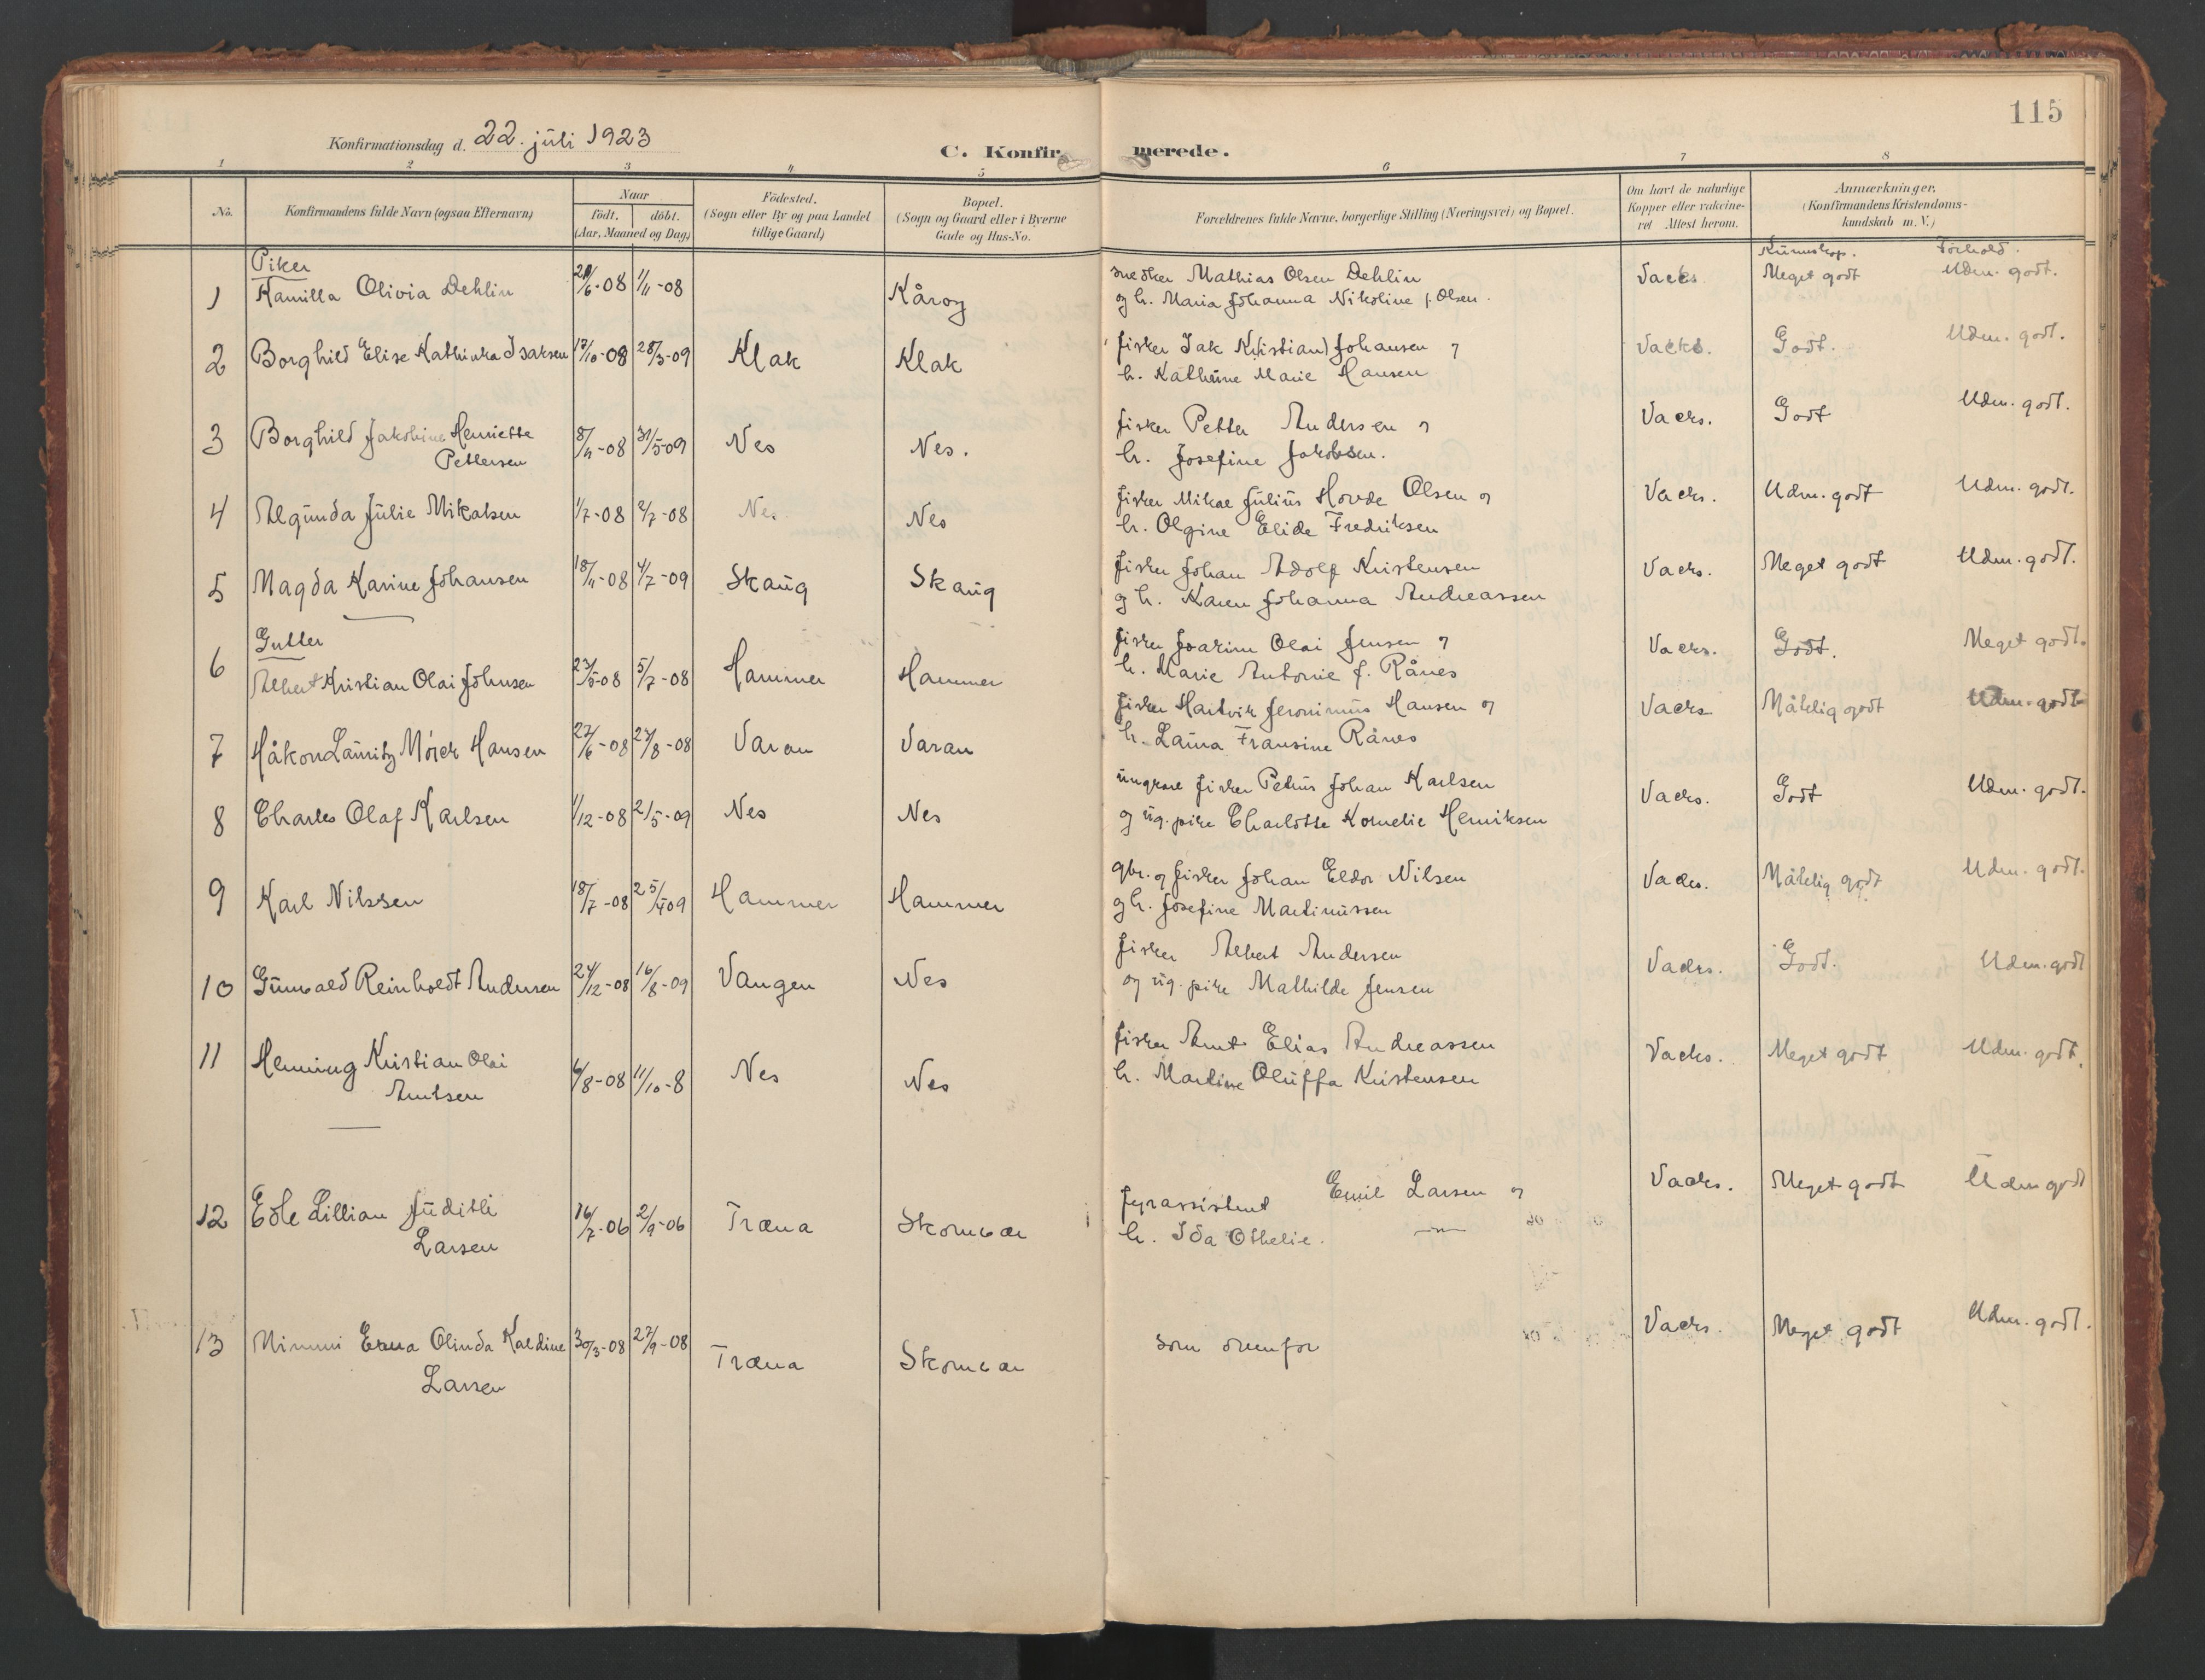 115
Konfirmationsdag d. 22. juli 1923
C. Konfirmerede.
1 2 3 4 5 6 7 8
No.
Konfirmandens fulde Navn (ogsaa Efternavn)
Naar
födt. döbt.
(Aar, Maaned og Dag)
Födested.
(Sogn eller By og paa Landet
tillige Gaard)
Bopæl.
(Sogn og Gaard eller i Byerne
Gade og Hus-No.
Forældrenes fulde Navne, borgerlige Stilling (Næringsvei) og Bopæl.
Om havt de naturlige
Kopper eller vakcine-
ret Attest herom.
Anmærkninger.
(Konfirmandens Kristendoms-
kundskab m. V.)
Kunnskap. Forhold.
Piker
1 Kamilla Olivia Dehlin 1/11-08 Kårøy
snedker Mathias Olsen Dehlin Vacks. Meget godt Udm. godt.
og h. Maria Johanna Nikoline f. Olsen.
2 Borghild Elise Kathinka Isaksen 28/3-09 Klak Klak
fisker Isak Kristian Johansen og Vacks. Godt. Udm. godt.
h. Kathrine Marie Hansen
3 Borghild Jakobine Henriette
Pettersen 8/11-08 31/5-09 Nes Nes.
fisker Petter Andersen og Vacks. Godt Udm. godt.
h. Josefine Jakobsen.
4 Algunda Julie Mikalsen 1/7-08 2/7-08 Nes Nes
fisker Mikal Julius Hovde Olsen og Vacks. Udm. godt Udm. godt.
h. Olgine Elide Fredriksen
5 Magda Karine Johansen 18/11-08 4/7-09 Skaug Skaug
fisker Johan Adolf Kristensen Vacks. Meget godt Udm. godt.
og h. Karen Johanna Andreassen
Gutter
6 Albert Kristian Olai Johnsen 23/5-08 5/7-08 Hammer Hammer
fisker Joakim Olai Jensen og Vacks. Godt. Meget godt.
h. Marie Antonie f. Rånes
7 Håkon Lauritz Meier Hansen 27/6-08 27/8-08 Varan Varan
fisker Hartvik Jeronimus Hansen og Vacks Måtelig godt Udm. godt
h. Laura Fransine Rånes
8 Charles Olaf Karlsen 1/12-08 2/5-09 Nes Nes
ungkare fisker Petrus Johan Karlsen Vacks. Godt Udm. godt.
og ug. pike Charlotte Kornelie Henriksen
9 Karl Nilssen 18/7-08 Hammer Hammer
gbr. og fisker Johan Eldor Nilsen Vacks. Måtelig godt Udm. godt.
og h. Josefine Martinussen
10 Gunvald Reinholdt Andersen 24/12-08 16/8-09 Vangen Nes
fisker Albert Andersen Vacks. Godt. Udm. godt
og ug. pike Mathilde Jensen
11 Henning Kristian Olai
Arntsen 6/8-08 11/10-8 Nes Nes
fisker Arnt Elias Andreassen Vacks. Meget godt Udm. godt
h. Martine Oluffa Kristensen
12 Edle Lillian Judith
Larsen 16/7-06 2/9-06 Træna Skomvær
fyrassistent Emil Larsen og Vacks. Meget godt Udm godt
h. Ida Othelie. —"—
13 Mimmi Erna Olinda Kaldine
Larsen 30/3-08 27/9-08 Træna Skomvær
som ovenfor Vacks. Meget godt Udm. godt.